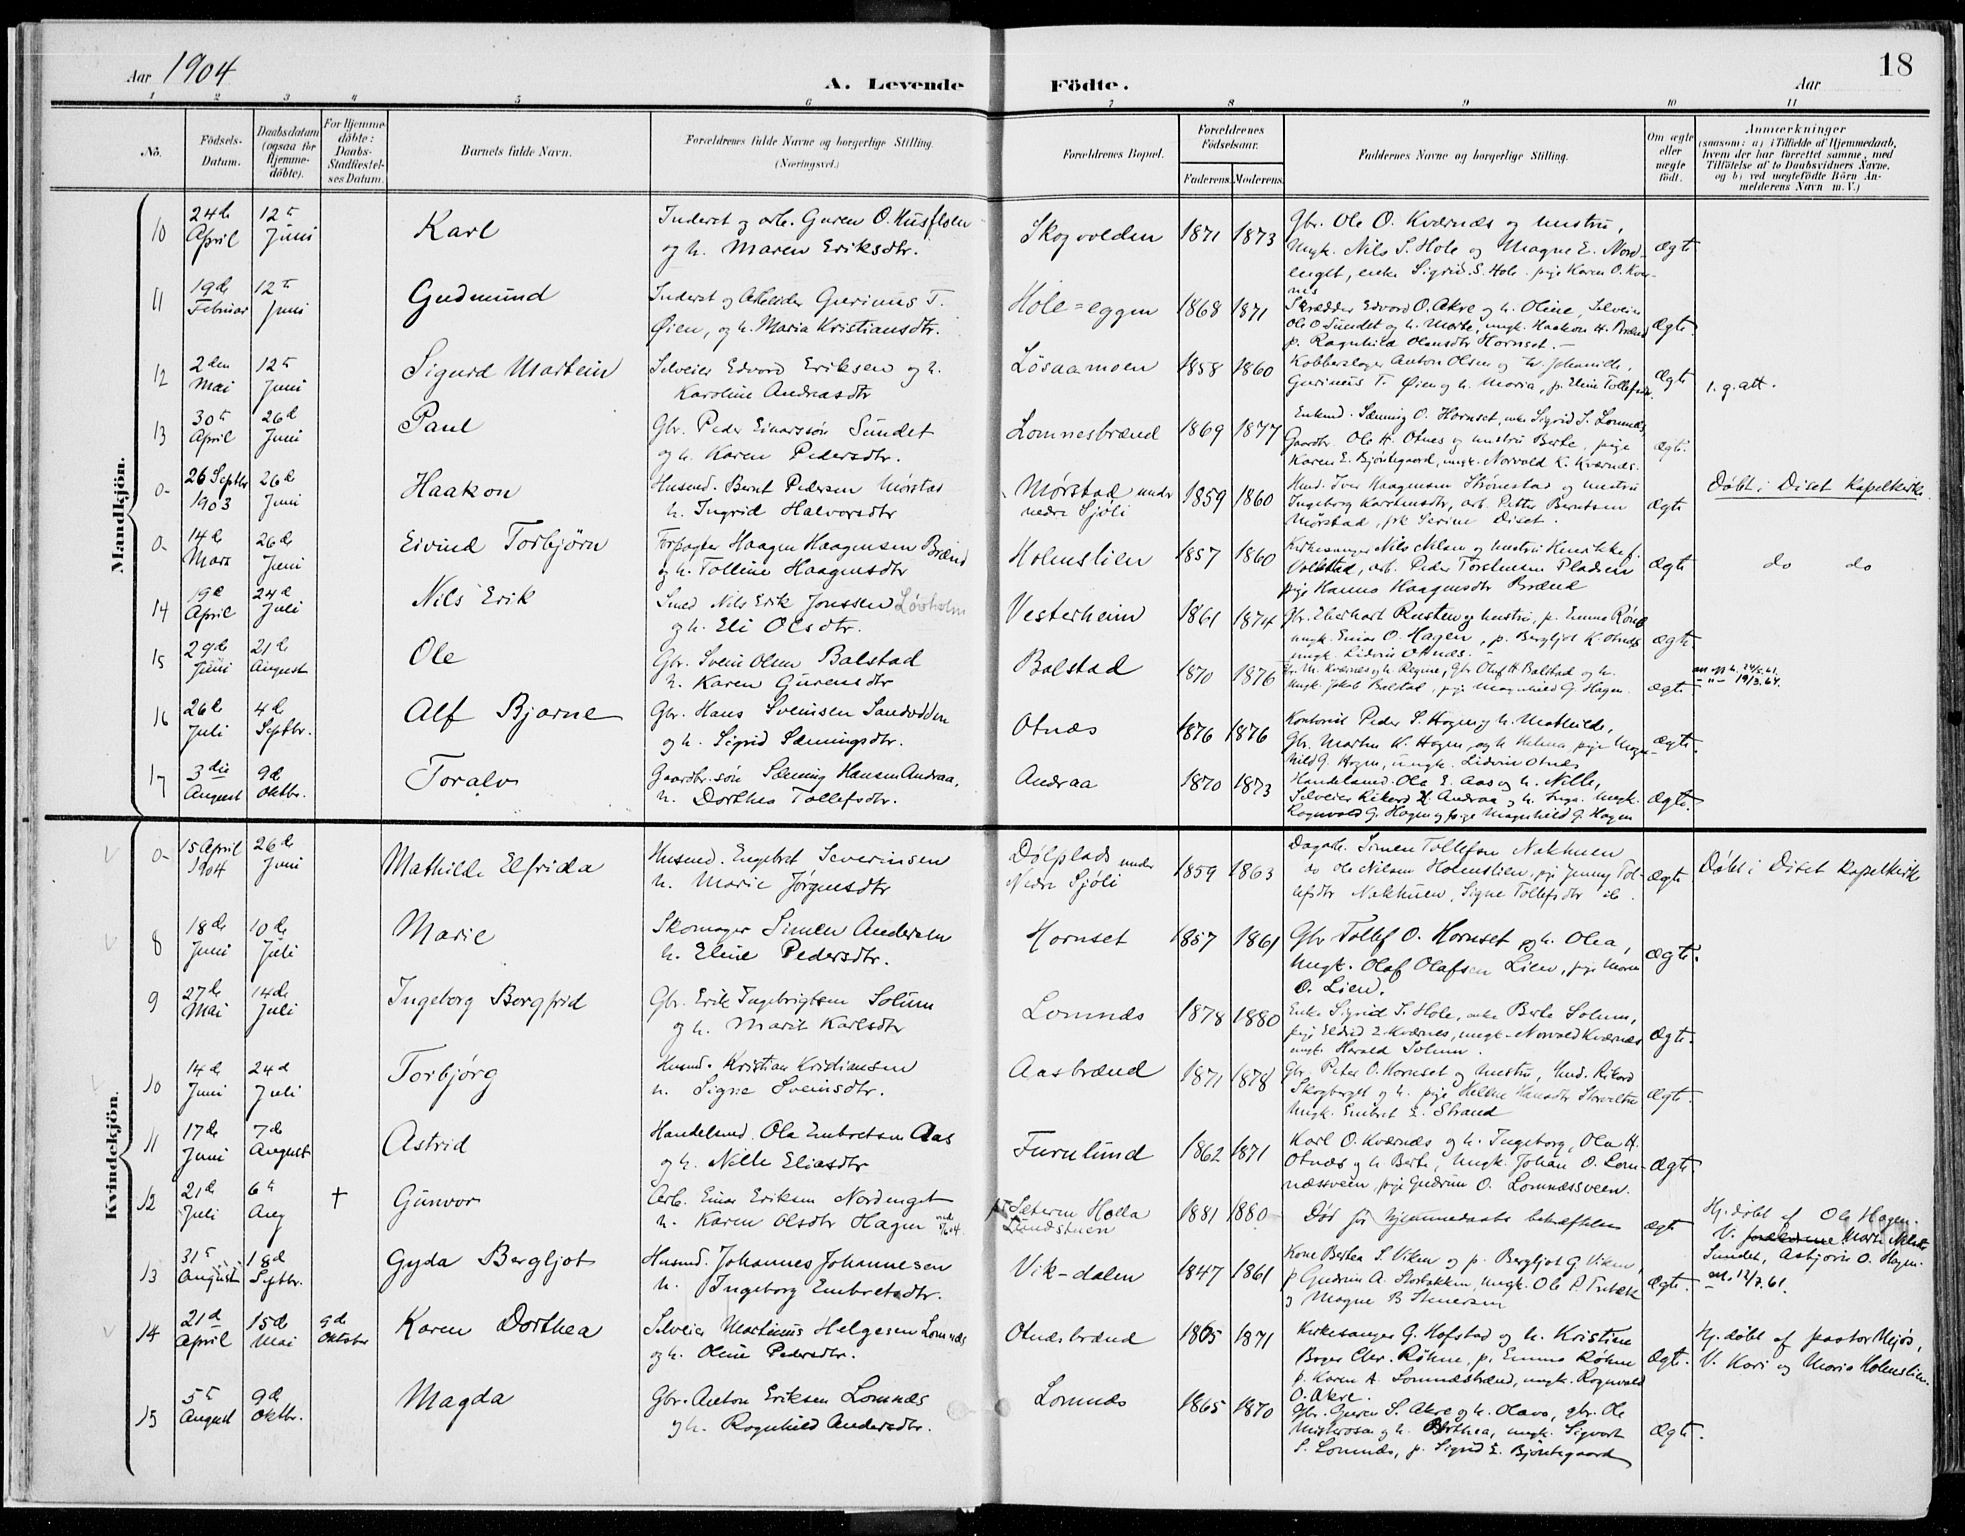 Aar 1904
A. Levende Födte.
Aar
18
1 2 3 4 5 6 7 8 9 10 11
No.
Födsels-Datum.
Daabsdatum (ogsaa for Hjemme-döbte).
For Hjemme-döbte: Daabs-Stadfæstel-ses Datum.
Barnets fulde Navn.
Forældrenes fulde Navne og borgerlige Stilling. (Næringsvei.)
Forældrenes Bopæl.
Forældrenes Födselsaar.
Faderens. Moderens.
Faddernes Navne og borgerlige Stilling.
Om ægte eller uægte födt.
Anmærkninger
(saasom: a) i Tilfælde af Hjemmedaab, hvem der har forrettet samme, med Tilföielse af to Daabsvidners Navne, og b) ved uægtefödte Börn An-melderens Navn m. V.)
Mandkjön.
10 24de April 12te Juni Karl Inderst og arb. Guren O. Husfloen og h. Maren Eriksdtr. Skogvolden 1871 1873 Gbr. Ole O. Kværnæs og hustru, Ungk. Nils S. Hole og Magne E. Nordenget, enke Sigrid S. Hole, pige Karen O. Kværnes Ægte
11 19de Februar 12te Juni Gudmund Inderst og Arbeider Gurinus T. Øien, og h. Maria Kristiansdtr. Hole=eggen 1868 1871 Skrædder Edvard O. Akre og h. Oline, Selveier Ole O Sundet og h. Marte, ungk. Haakon H. Brænd p. Ragnhild Olausdtr Hornset. Ægte
12 2den Mai 12te Juni Sigurd Martein Selveier Edvard Eriksen og h. Karoline Andreasdtr Løsaamoen 1858 1860 Kobberslager Anton Olsen og h. Johannide, Gurinus T. Øien og h. Maria, p. Eline Tollefsdtr. Ægte 1. g. att.
13 30te April 26de Juni Paul Gbr. Peder Einarssøn Sundet og h. Karen Pedersdtr. Lomnesbrænd 1869 1877 Enkemd. Sæming O. Hornset, enke Sigrid S. Lomnæs, Gaardbr. Ole H. Otnes og hustru Berte, pige Karen E. Bjøntegaard, ungk. Norvald K. Kværnæs. Ægte.
0- 26 Septbr 1903 26de Juni Haakon Husmd. Bernt Pedersen Mørstad h. Ingrid Halvorsdtr Mørstad under nedre Sjøli 1859 1860 Husmd. Iver Haagensen Strønestad og hustru Ingeborg Karstensdtr, arb. Petter Berntsen Mørstad, frk Serine Diset. Ægte Døbt i Diset Kapelkirke.
0- 14de Mars 26de Juni Eivind Torbjørn Forpagter Haagen Haagensen Brænd og h. Talline Haagensdtr Holmslien 1857 1860 Kirkesanger Nils Nilsen og hustru Henrikke f. Volkstad, arb. Peder Torstensen Pladsen pige Hanna Haagensdtr Brænd Ægte do do
14 19de April 24de Juli Nils Erik Smed Nils Erik Jonssen Løvholm og h. Eli Olsdtr. Vesterheim 1861 1874 Gbr. Eberhart Rusten og hustru, p. Emma Røne ungk. Einar O. Hagen, p. Bergljot K. Otnæs ungk. Lidvin Otnæs. Ægte.
15 29de Juni 21de August Ole Gbr. Svein Olsen Balstad h. Karen Gurensdtr Balstad 1870 1876 M. Kværnes og h. Regine, Gbr Oluf H. Balstad og h. Ungk. Jakob Balstad, pige Magnhild G. Hagen. Ægte. 19/3.64.
16 26de Juli 4de Septbr. Alf Bjarne Gbr. Hans Sveinsen Sandodden og h. Sigrid Sæmingsdtr. Otnæs 1876 1876 Kontorist Peder S. Hagen og h. Mathilde, Gbr. Martin K. Hagen, og h. Helena, pige Magnhild G. Hagen, ungk. Lidvin Otnæs Ægte.
17 3die August 9de Oktbr. Toralv Gaardbr. søn Sæming Hansen Andraa, h. Dorthea Tollefsdtr. Andraa 1870 1873 Handelsmd. Ola E. Aas og h. Nille, Selveier Rikard H. Andraa og h. Inga. Ungk. Ragnvald G. Hagen og pige Magnhild G. Hagen Ægte.
Kvindekjön.
0- 15 April 1904 26de Juni Mathilde Elfrida Husmd. Engebret Severinsen h. Marie Jørgensdtr Dølplads under Nedre Sjøli 1859 1863 Dagarb. Simen Tollefsen Nakkuen do Ole Nilsen Holmslien, pige Jenny Tollefsdtr Nakkuen, Signe Tollefsdtr ib. Ægte. Døbt i Diset Kapelkirke
8 18de Juni 10de Juli Marie Skomager Simen Andersen h. Eline Pedersdtr. Hornset 1857 1861 Gbr Tollef O. Hornset og h. Olea, Ungk. Olaf Olafsen Lien, pige Maren O. Lien. Ægte.
9 27de Mai 14de Juli Ingeborg Borgfrid Gbr. Erik Ingebrigtsen Solum og h. Marit Karlsdtr Lomnæs 1878 1880 Enke Sigrid S. Hole, enke Berte Solum, pige Eldrid E. Kværnes, ungk. Norvald Kværnæs ungk. Harald Solum. Ægte.
10 14de Juni 24de Juli Torbjørg Husmd. Kristian Kristiansen h. Signe Sveinsdtr. Aasbrænd 1871 1878 Gbr. Peter O. Hornset og hustru, Hmd. Rikard Skogberget og h. pige Helene Hansdtr Ungk. Embret E. Strand Ægte.
11 17de Juni 7de August Astrid Handelsmd. Ola Embretsen Aas og h. Nille Eliasdtr Furulund 1862 1871 Karl O. Kværnæs og h. Ingeborg, Ola H. Otnæs og h. Berte, Ungk. Johan O. Lomnæssveen, pige Gudrun O. Lomnæssveen. Ægte
12 21de Juli 6te Aug † Gunvor Arb. Einar Eriksen Nordenget h. Karen Olsdtr Hagen Seteren Holla Lundstuen 1881 1880 Død før hjemmedaabs bekræftelsen ægte Hj. døbt af Ole Hagen. V. forældrene Marte Sundet, Asbjørn O. Hagen.
13 31te August 18de Septbr. Gyda Bergljot Husmd. Johannes Johannesen h. Ingeborg Embretsdtr. Vik-dalen 1847 1861 Kone Berthea S. Viken og p. Bergljot G. Viken, p Gudrun A. Storbakken, ungk. Ole P. og Magne B Stenersen Ægte. 12/7.61.
14 21de April 15de Mai 9de Oktober Karen Dorthea Selveier Martinus Helgesen Lomnæs og h. Oline Pedersdtr. Otnæsbrænd 1865 1871 Kirkesanger G. Hofstad og h. Kristine Boger Chr. Røhne, p. Emma Røhne p. Karen A. Lomnæsbrænd, ungk. Rognvald O. Akre. Ægte. Hj. døbt af pastor Mejós, V. Kari og Maria Holmslien.
15 5te August 9de Oktbr. Magda Gbr. Anton Eriksen Lomnæs og h. Rognhild Andersdtr. Lomnæs 1865 1870 Gbr. Guren S. Akre og h. Olava, gbr. Ole Misterosen og h. Berthea, ungk. Sigvart S. Lomnæs, p. Sigrid E. Bjøntegaard Ægte.